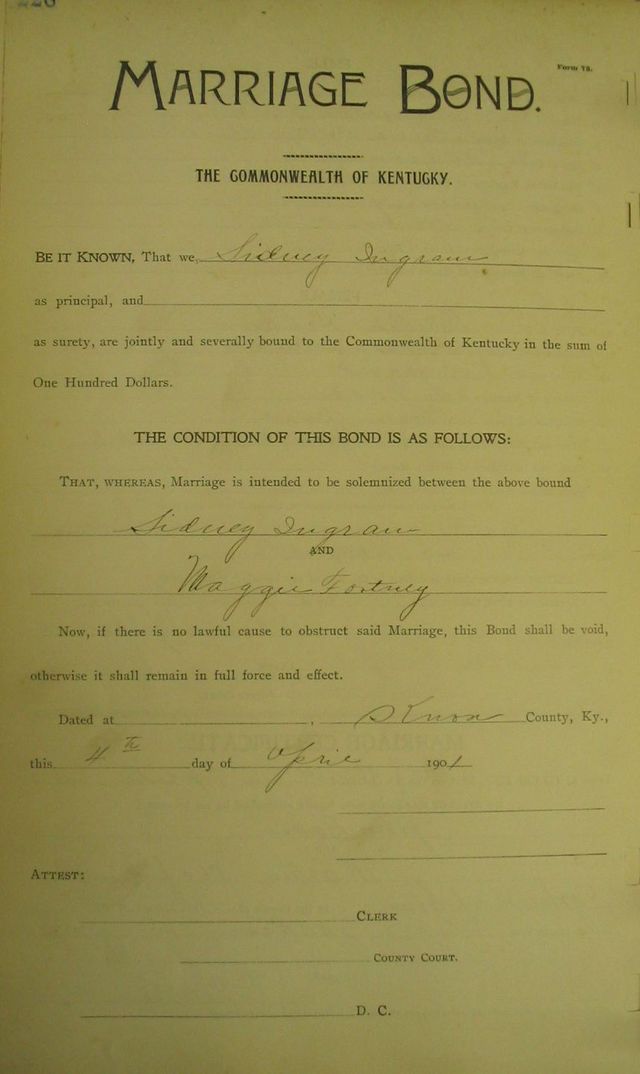 226
Form 78.
MARRIAGE BOND.
THE COMMONWEALTH OF KENTUCKY.
BE IT KNOWN, That we, Sidney Ingram
as principal, and
as surety, are jointly and severally bound to the Commonwealth of Kentucky in the sum of
One Hundred Dollars.
THE CONDITION OF THIS BOND IS AS FOLLOWS:
THAT, WHEREAS, Marriage is intended to be solemnized between the above bound
Sidney Ingram
AND
Maggie Fortney
Now, if there is no lawful cause to obstruct said Marriage, this Bond shall be void,
otherwise it shall remain in full force and effect.
Dated at , Knox County, Ky.,
this 4th day of April 1901
ATTEST:
CLERK
COUNTY COURT.
D. C.